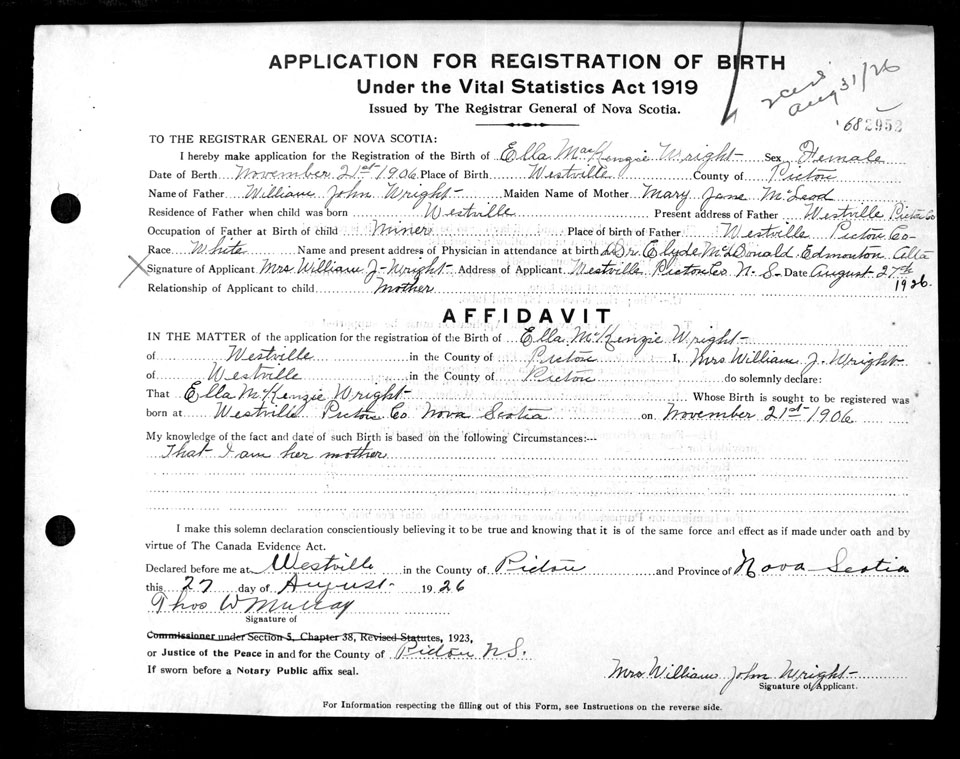 APPLICATION FOR REGISTRATION OF BIRTH
Under the Vital Statistics Act 1919
Issued by The Registrar General of Nova Scotia.
Aug 31/26
682952
TO THE REGISTRAR GENERAL OF NOVA SCOTIA:
I hereby make application for the Registration of the Birth of Ella MacKenzie Wright Sex Female
Date of Birth November 21st 1906 Place of Birth Westville County of Pictou
Name of Father William John Wright Maiden Name of Mother Mary Jane McLeod
Residence of Father when child was born Westville Present address of Father Westville Pictou Co
Occupation of Father at Birth of child miner Place of birth of Father Westville Pictou Co
Race White Name and present address of Physician in attendance at birth Dr. Clyde McDonald Edmonton Alta
Signature of Applicant Mrs William J. Wright Address of Applicant Westville Pictou Co N. S. Date August 27th
1926.
Relationship of Applicant to child Mother
AFFIDAVIT
IN THE MATTER of the application for the registration of the Birth of Ella McKenzie Wright
of Westville in the County of Pictou I, Mrs William J. Wright
of Westville in the County of Pictou do solemnly declare:
That Ella McKenzie Wright Whose Birth is sought to be registered was
born at Westville Pictou Co Nova Scotia on November 21st 1906
My knowledge of the fact and date of such Birth is based on the following Circumstances:---
That I am her mother
I make this solemn declaration conscientiously believing it to be true and knowing that it is of the same force and effect as if made under oath and by
virtue of The Canada Evidence Act.
Declared before me at Westville in the County of Pictou and Province of Nova Scotia
this 27 day of August 1926
Thos W Murray
Signature of
Commissioner under Section 5, Chapter 38, Revised Statutes, 1923,
or Justice of the Peace in and for the County of Pictou N.S.
If sworn before a Notary Public affix seal.
Mrs William John Wright
Signature of Applicant.
For Information respecting the filling out of this Form, see Instructions on the reverse side.